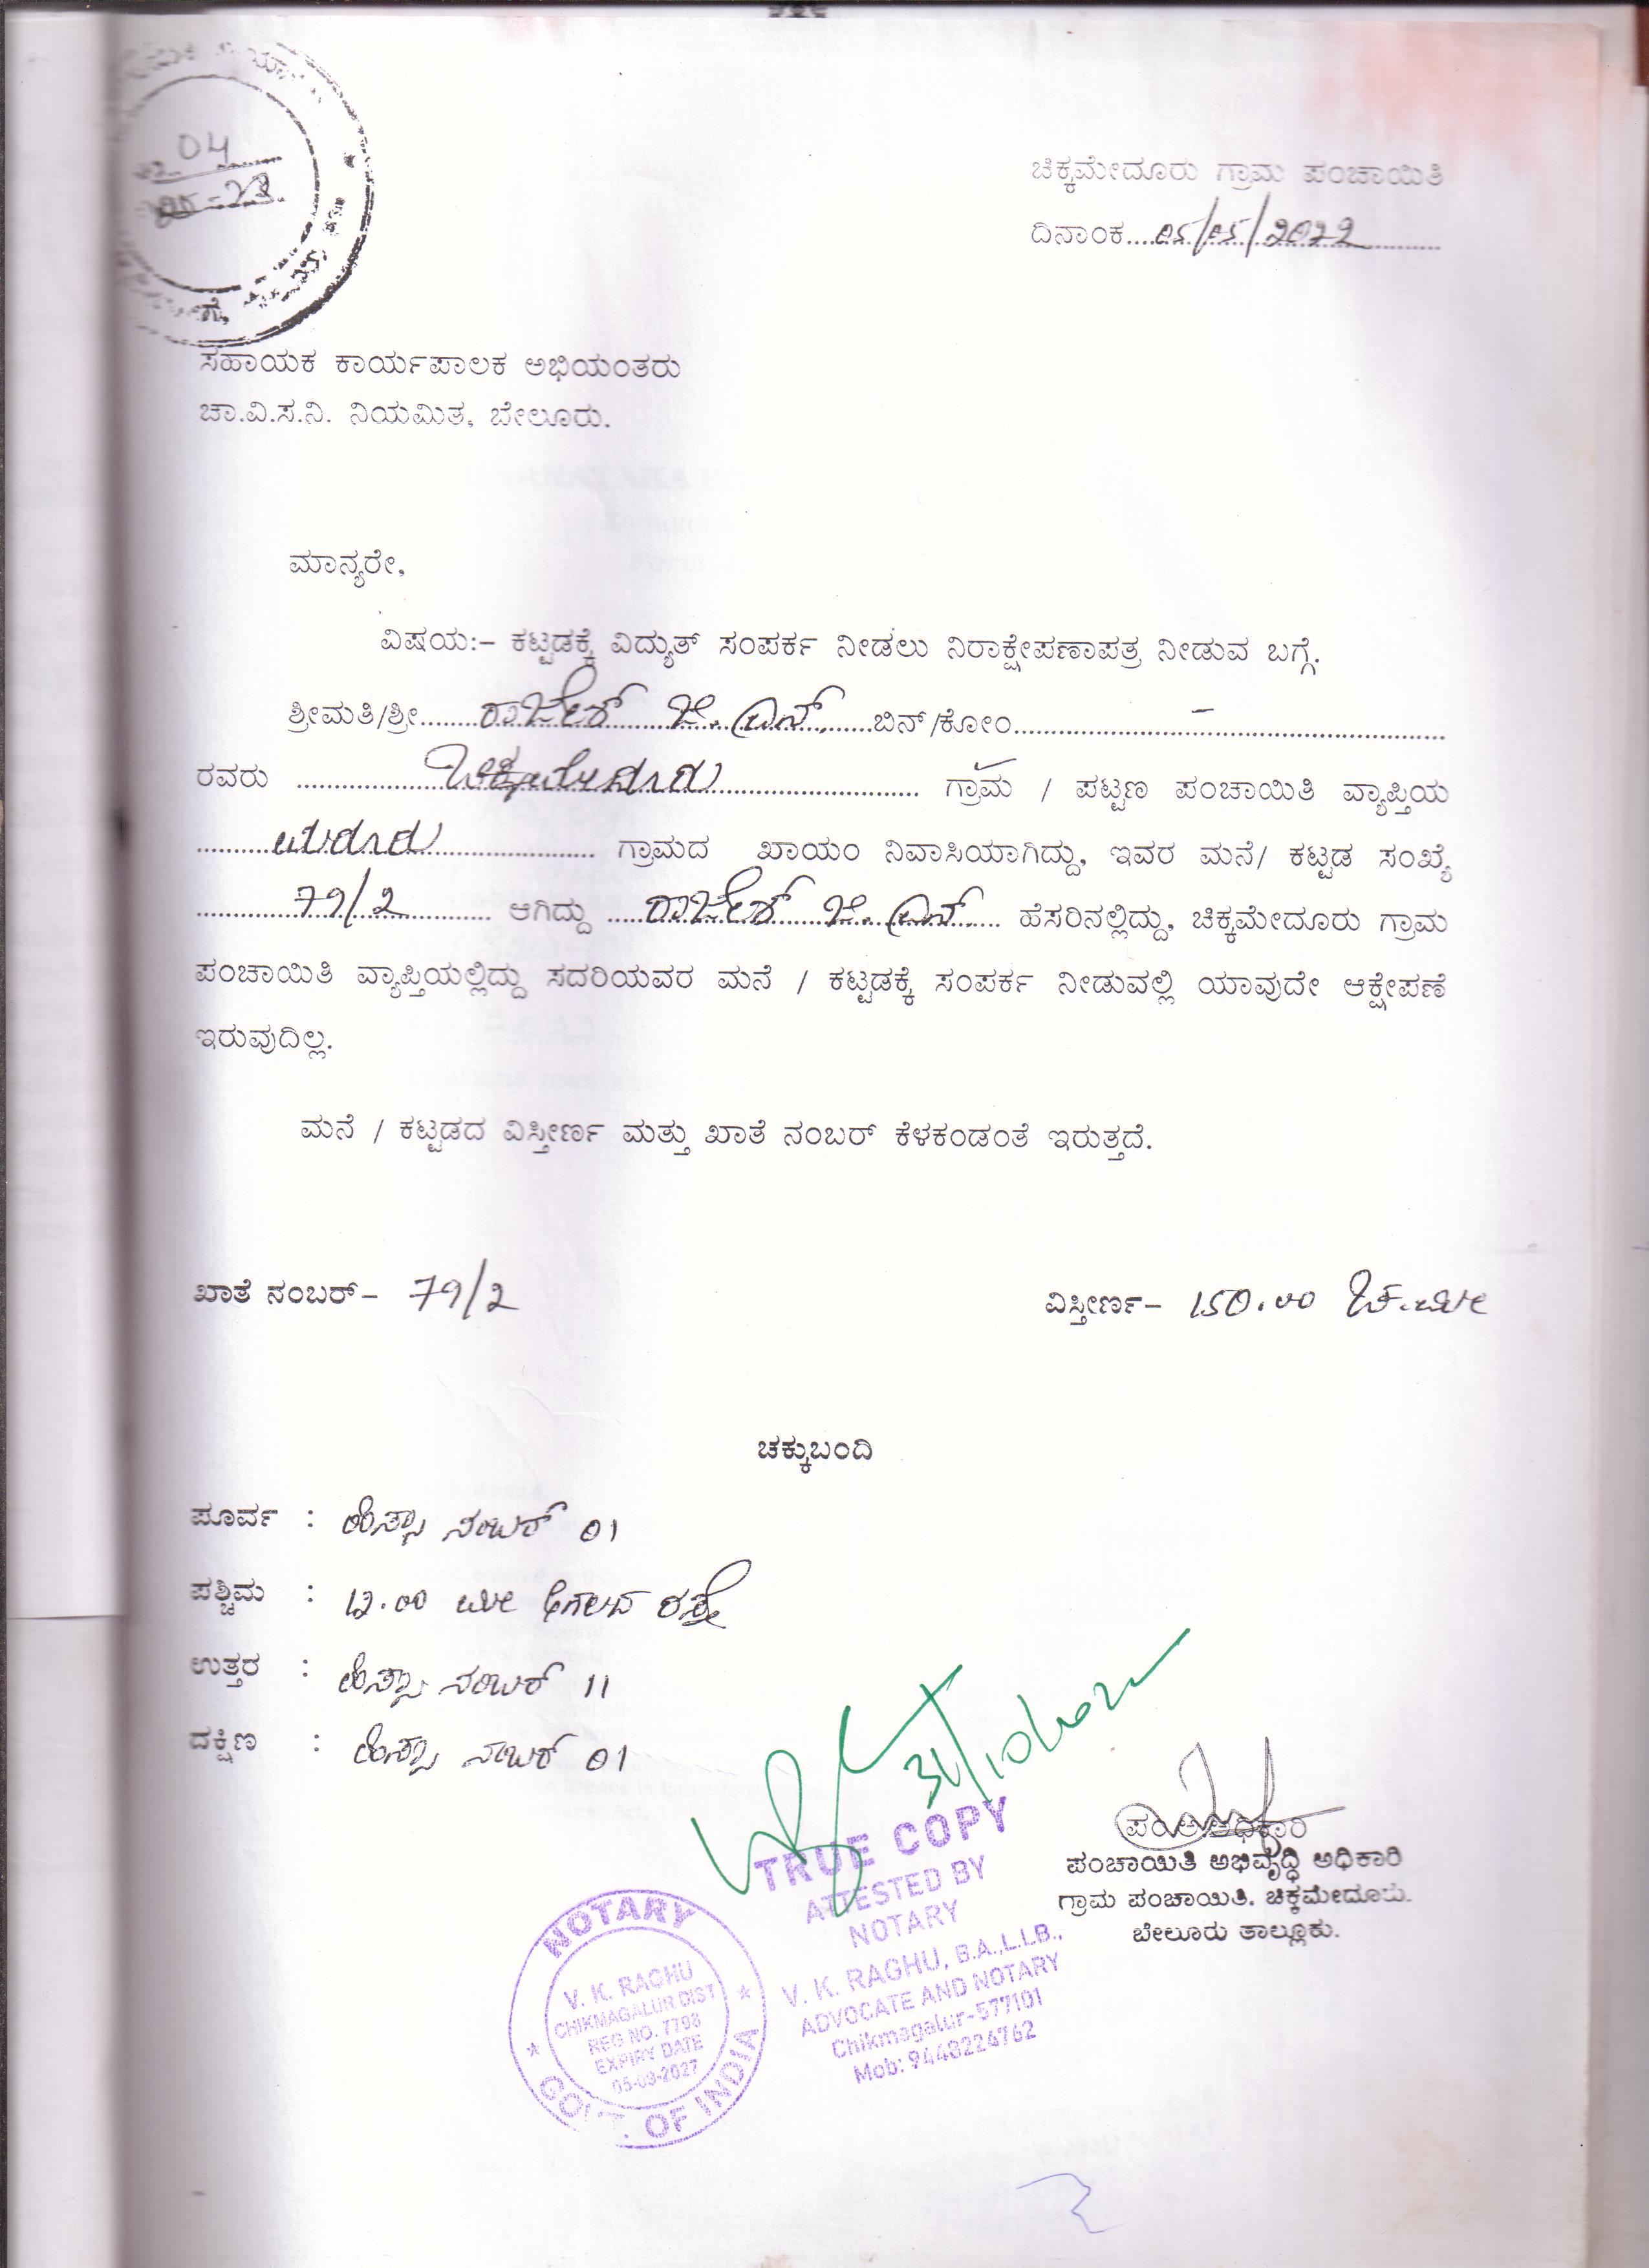 04
-23
ಚಿಕ್ಕಮೇದೂರು ಗ್ರಾಮ ಪಂಚಾಯಿತಿ
ದಿನಾಂಕ....05/05/2022............
ಸಹಾಯಕ ಕಾರ್ಯಪಾಲಕ ಅಭಿಯಂತರು
ಚಾ.ವಿ.ಸ.ನಿ. ನಿಯಮಿತ, ಬೇಲೂರು.
ಮಾನ್ಯರೇ,
ವಿಷಯ:- ಕಟ್ಟಡಕ್ಕೆ ವಿದ್ಯುತ್ ಸಂಪರ್ಕ ನೀಡಲು ನಿರಾಕ್ಷೇಪಣಾಪತ್ರ ನೀಡುವ ಬಗ್ಗೆ.
ಶ್ರೀಮತಿ/ಶ್ರೀ.......ರಾಜೇಶ್ ಜಿ. ಎನ್.......ಬಿನ್/ಕೋಂ............–............
ರವರು ............ಚಿಕ್ಕಮೇದೂರು............ ಗ್ರಾಮ / ಪಟ್ಟಣ ಪಂಚಾಯಿತಿ ವ್ಯಾಪ್ತಿಯ
............ ಗ್ರಾಮದ ಖಾಯಂ ನಿವಾಸಿಯಾಗಿದ್ದು, ಇವರ ಮನೆ/ ಕಟ್ಟಡ ಸಂಖ್ಯೆ
............79/2............ ಆಗಿದ್ದು .....ರಾಜೇಶ್ ಜಿ. ಎನ್..... ಹೆಸರಿನಲ್ಲಿದ್ದು, ಚಿಕ್ಕಮೇದೂರು ಗ್ರಾಮ
ಪಂಚಾಯಿತಿ ವ್ಯಾಪ್ತಿಯಲ್ಲಿದ್ದು ಸದರಿಯವರ ಮನೆ / ಕಟ್ಟಡಕ್ಕೆ ಸಂಪರ್ಕ ನೀಡುವಲ್ಲಿ ಯಾವುದೇ ಆಕ್ಷೇಪಣೆ
ಇರುವುದಿಲ್ಲ.
ಮನೆ / ಕಟ್ಟಡದ ವಿಸ್ತೀರ್ಣ ಮತ್ತು ಖಾತೆ ನಂಬರ್ ಕೆಳಕಂಡಂತೆ ಇರುತ್ತದೆ.
ಖಾತೆ ನಂಬರ್- 79/2 ವಿಸ್ತೀರ್ಣ- 150.00 ಚ.ಮೀ
ಚಕ್ಕುಬಂದಿ
ಪೂರ್ವ : ಹಿಸ್ಸಾ ನಂಬರ್ 01
ಪಶ್ಚಿಮ : 12.00 ಮೀ ಅಗಲದ ರಸ್ತೆ
ಉತ್ತರ : ಹಿಸ್ಸಾ ನಂಬರ್ 11
ದಕ್ಷಿಣ : ಹಿಸ್ಸಾ ನಂಬರ್ 01
ಪಂ.ಅ.ಅಧಿಕಾರಿ
ಪಂಚಾಯಿತಿ ಅಭಿವೃದ್ಧಿ ಅಧಿಕಾರಿ
ಗ್ರಾಮ ಪಂಚಾಯಿತಿ. ಚಿಕ್ಕಮೇದೂರು.
ಬೇಲೂರು ತಾಲ್ಲೂಕು.
TRUE COPY
ATTESTED BY
NOTARY
V. K. RAGHU, B.A.,L.LB.,
ADVOCATE AND NOTARY
Chikmagalur-577101
Mob: 9448224762
NOTARY
V. K. RAGHU
CHIKMAGALUR DIST
REG NO. 7798
EXPIRY DATE
05-03-2027
GOVT. OF INDIA